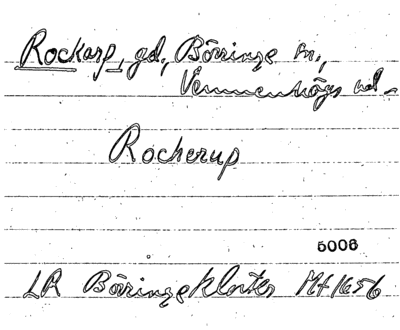 Rockarp, gd, Börringe sn.,
Vemmenhögs hd.
Rocherup
5006
LR Börringekloster Mf 1656